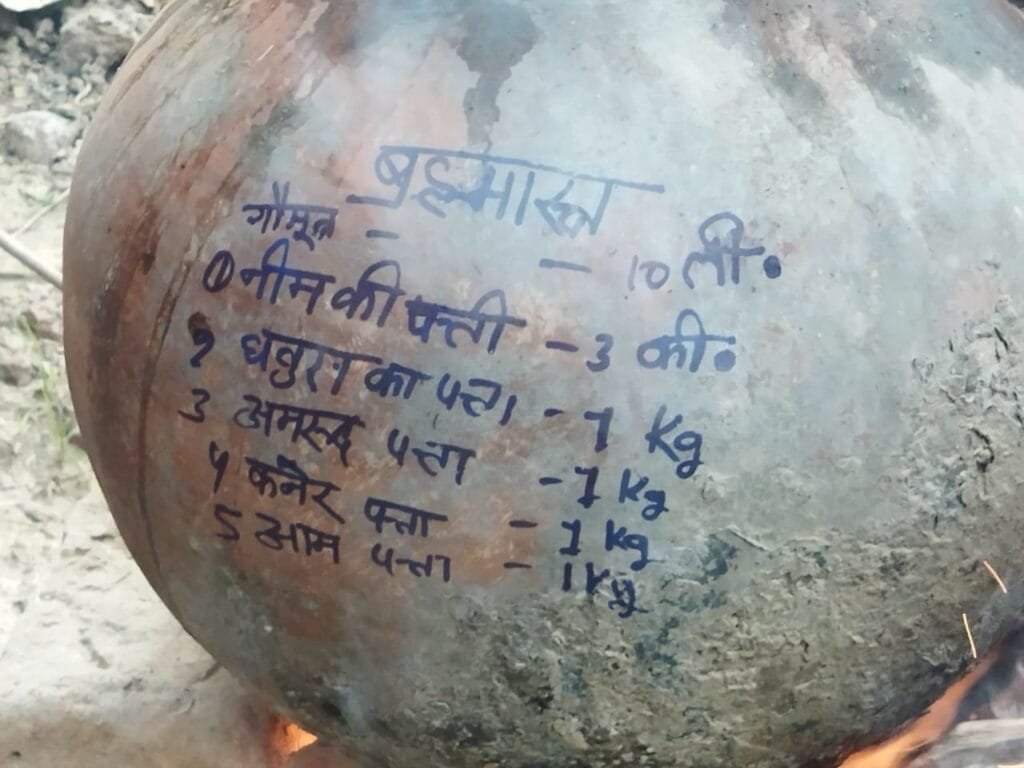 ब्रह्मास्त्र
गौमूत्र - - 10 ली.
1 नीम की पत्ती - 3 की.
2 धतुरा का पत्ता - 1 Kg
3 अमरूद पत्ता - 1 Kg
4 कनेर पत्ता - 1 Kg
5 आम पत्ता - 1 Kg